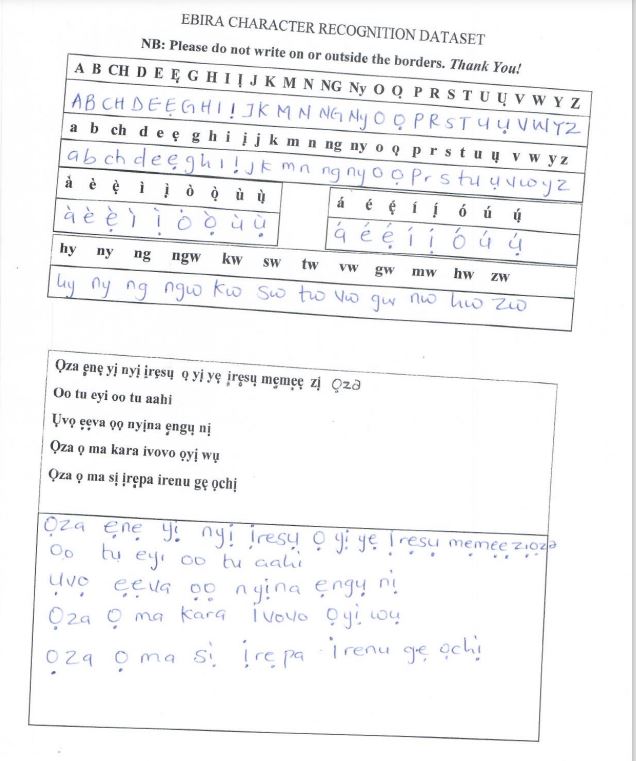 EBIRA CHARACTER RECOGNITION DATASET
NB: Please do not write on or outside the borders. Thank You!
A B CH D E Ẹ G H I Ị J K M N NG Ny O Ọ P R S T U Ụ V W Y Z
A B CH D E Ẹ G H I Ị J K M N NG Ny O Ọ P R S T U Ụ V W Y Z
a b ch d e ẹ g h i ị j k m n ng ny o ọ p r s t u ụ v w y z
a b ch d e ẹ g h i ị J k m n ng ny o ọ p r s t u ụ v w y z
à è ẹ̀ ì ị̀ ò ọ̀ ù ụ̀
à è ẹ̀ ì ị̀ ò ọ̀ ù ụ̀
á é ẹ́ í ị́ ó ú ụ́
á é ẹ́ í ị́ ó ú ụ́
hy ny ng ngw kw sw tw vw gw mw hw zw
hy ny ng ngw kw sw tw vw gw nw hw zw
Ọza ẹnẹ yị nyị ịrẹsụ ọ yị yẹ ịrẹsụ mẹmẹẹ zị Ọzə
Oo tu eyi oo tu aahi
Ụvọ ẹẹva ọọ nyịna ẹngụ nị
Ọza ọ ma kara ivovo ọyị wụ
Ọza ọ ma sị ịrẹpa irenu gẹ ọchị
Ọza ẹnẹ yị nyị ịrẹsụ Ọ yị yẹ ịrẹsụ mẹmẹẹ zị ọzə
Oo tu eyi oo tu aahi
Ụvọ ẹẹva ọọ nyịna ẹngụ nị
Ọza Ọ ma kara ivovo Ọyị wụ
Ọza Ọ ma sị ịrẹpa irenu gẹ ọchị